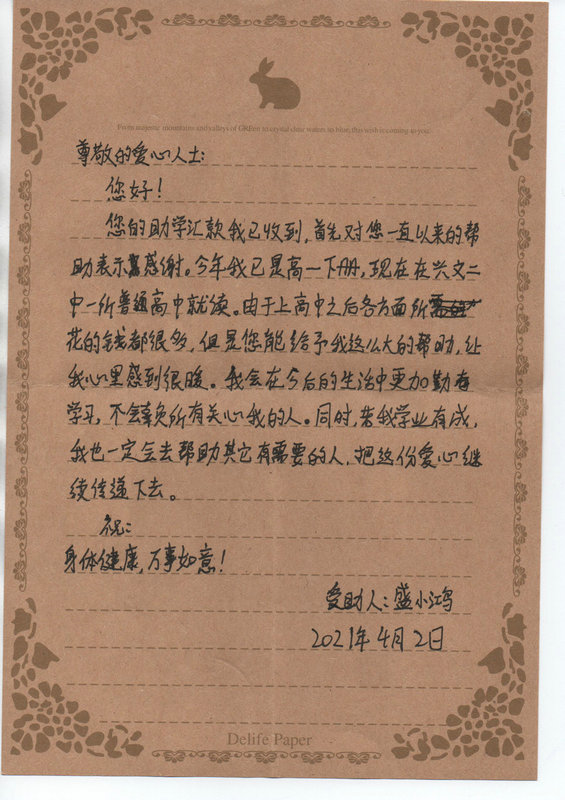 From majestic mountains and valleys of GREen to crystal clear waters to blue, this wish is coming to you
尊敬的爱心人士:
您好!
您的助学汇款我已收到,首先对您一直以来的帮
助表示感谢。今年我已是高一下册,现在在兴文二
中一所普通高中就读。由于上高中之后各方面所
花的钱都很多,但是您能给予我这么大的帮助,让
我心里感到很暖。我会在今后的生活中更加勤奋
学习,不会辜负所有关心我的人。同时,若我学业有成,
我也一定会去帮助其它有需要的人,把这份爱心继
续传递下去。
祝:
身体健康,万事如意!
受助人:盛小鸿
2021年4月2日
Delife Paper